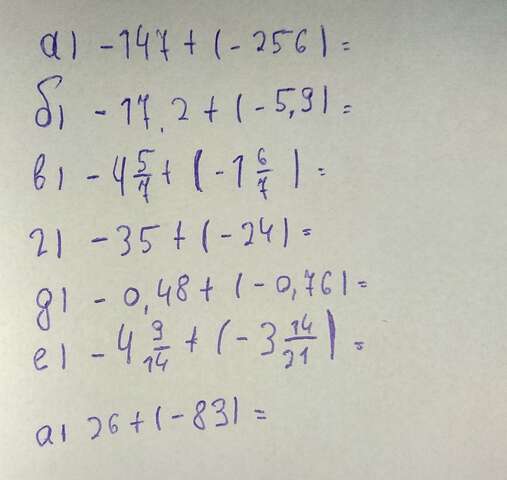 а) -147 + (-256) =
б) -17,2 + (-5,9) =
в) -4 5/7 + (-1 6/7) =
г) -35 + (-24) =
д) -0,48 + (-0,76) =
е) -4 9/14 + (-3 14/21) =
а) 26 + (-83) =